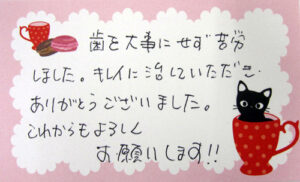 歯を大事にせず苦労
しました。キレイに治していただき
ありがとうございました。
これからもよろしく
お願いします!!